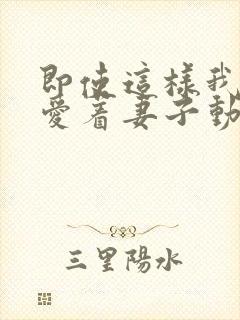 即使這樣我
愛着妻子動
三里陽水